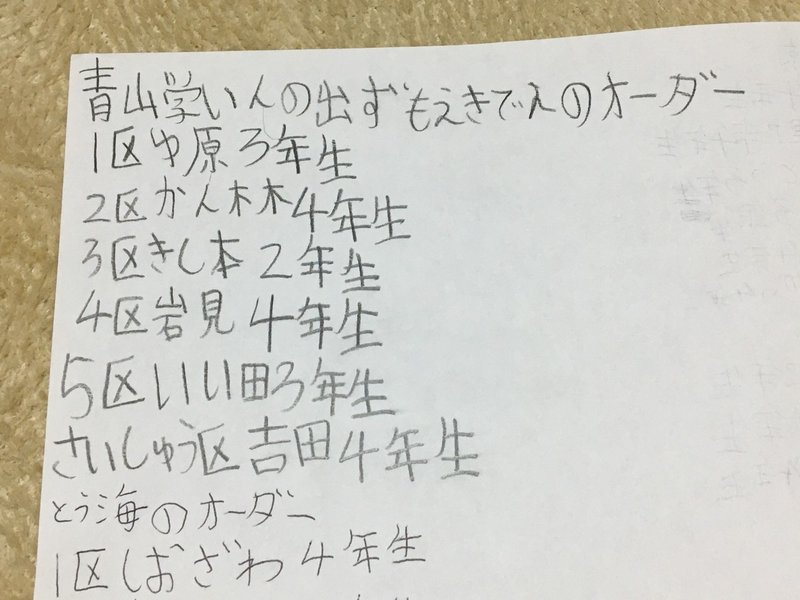 青山学いんの出ずもえきで人のオーダー
1区ゆ原3年生
2区かん林4年生
3区きし本2年生
4区岩見4年生
5区いい田3年生
さいしゅう区吉田4年生
とう海のオーダー
1区しおざわ4年生